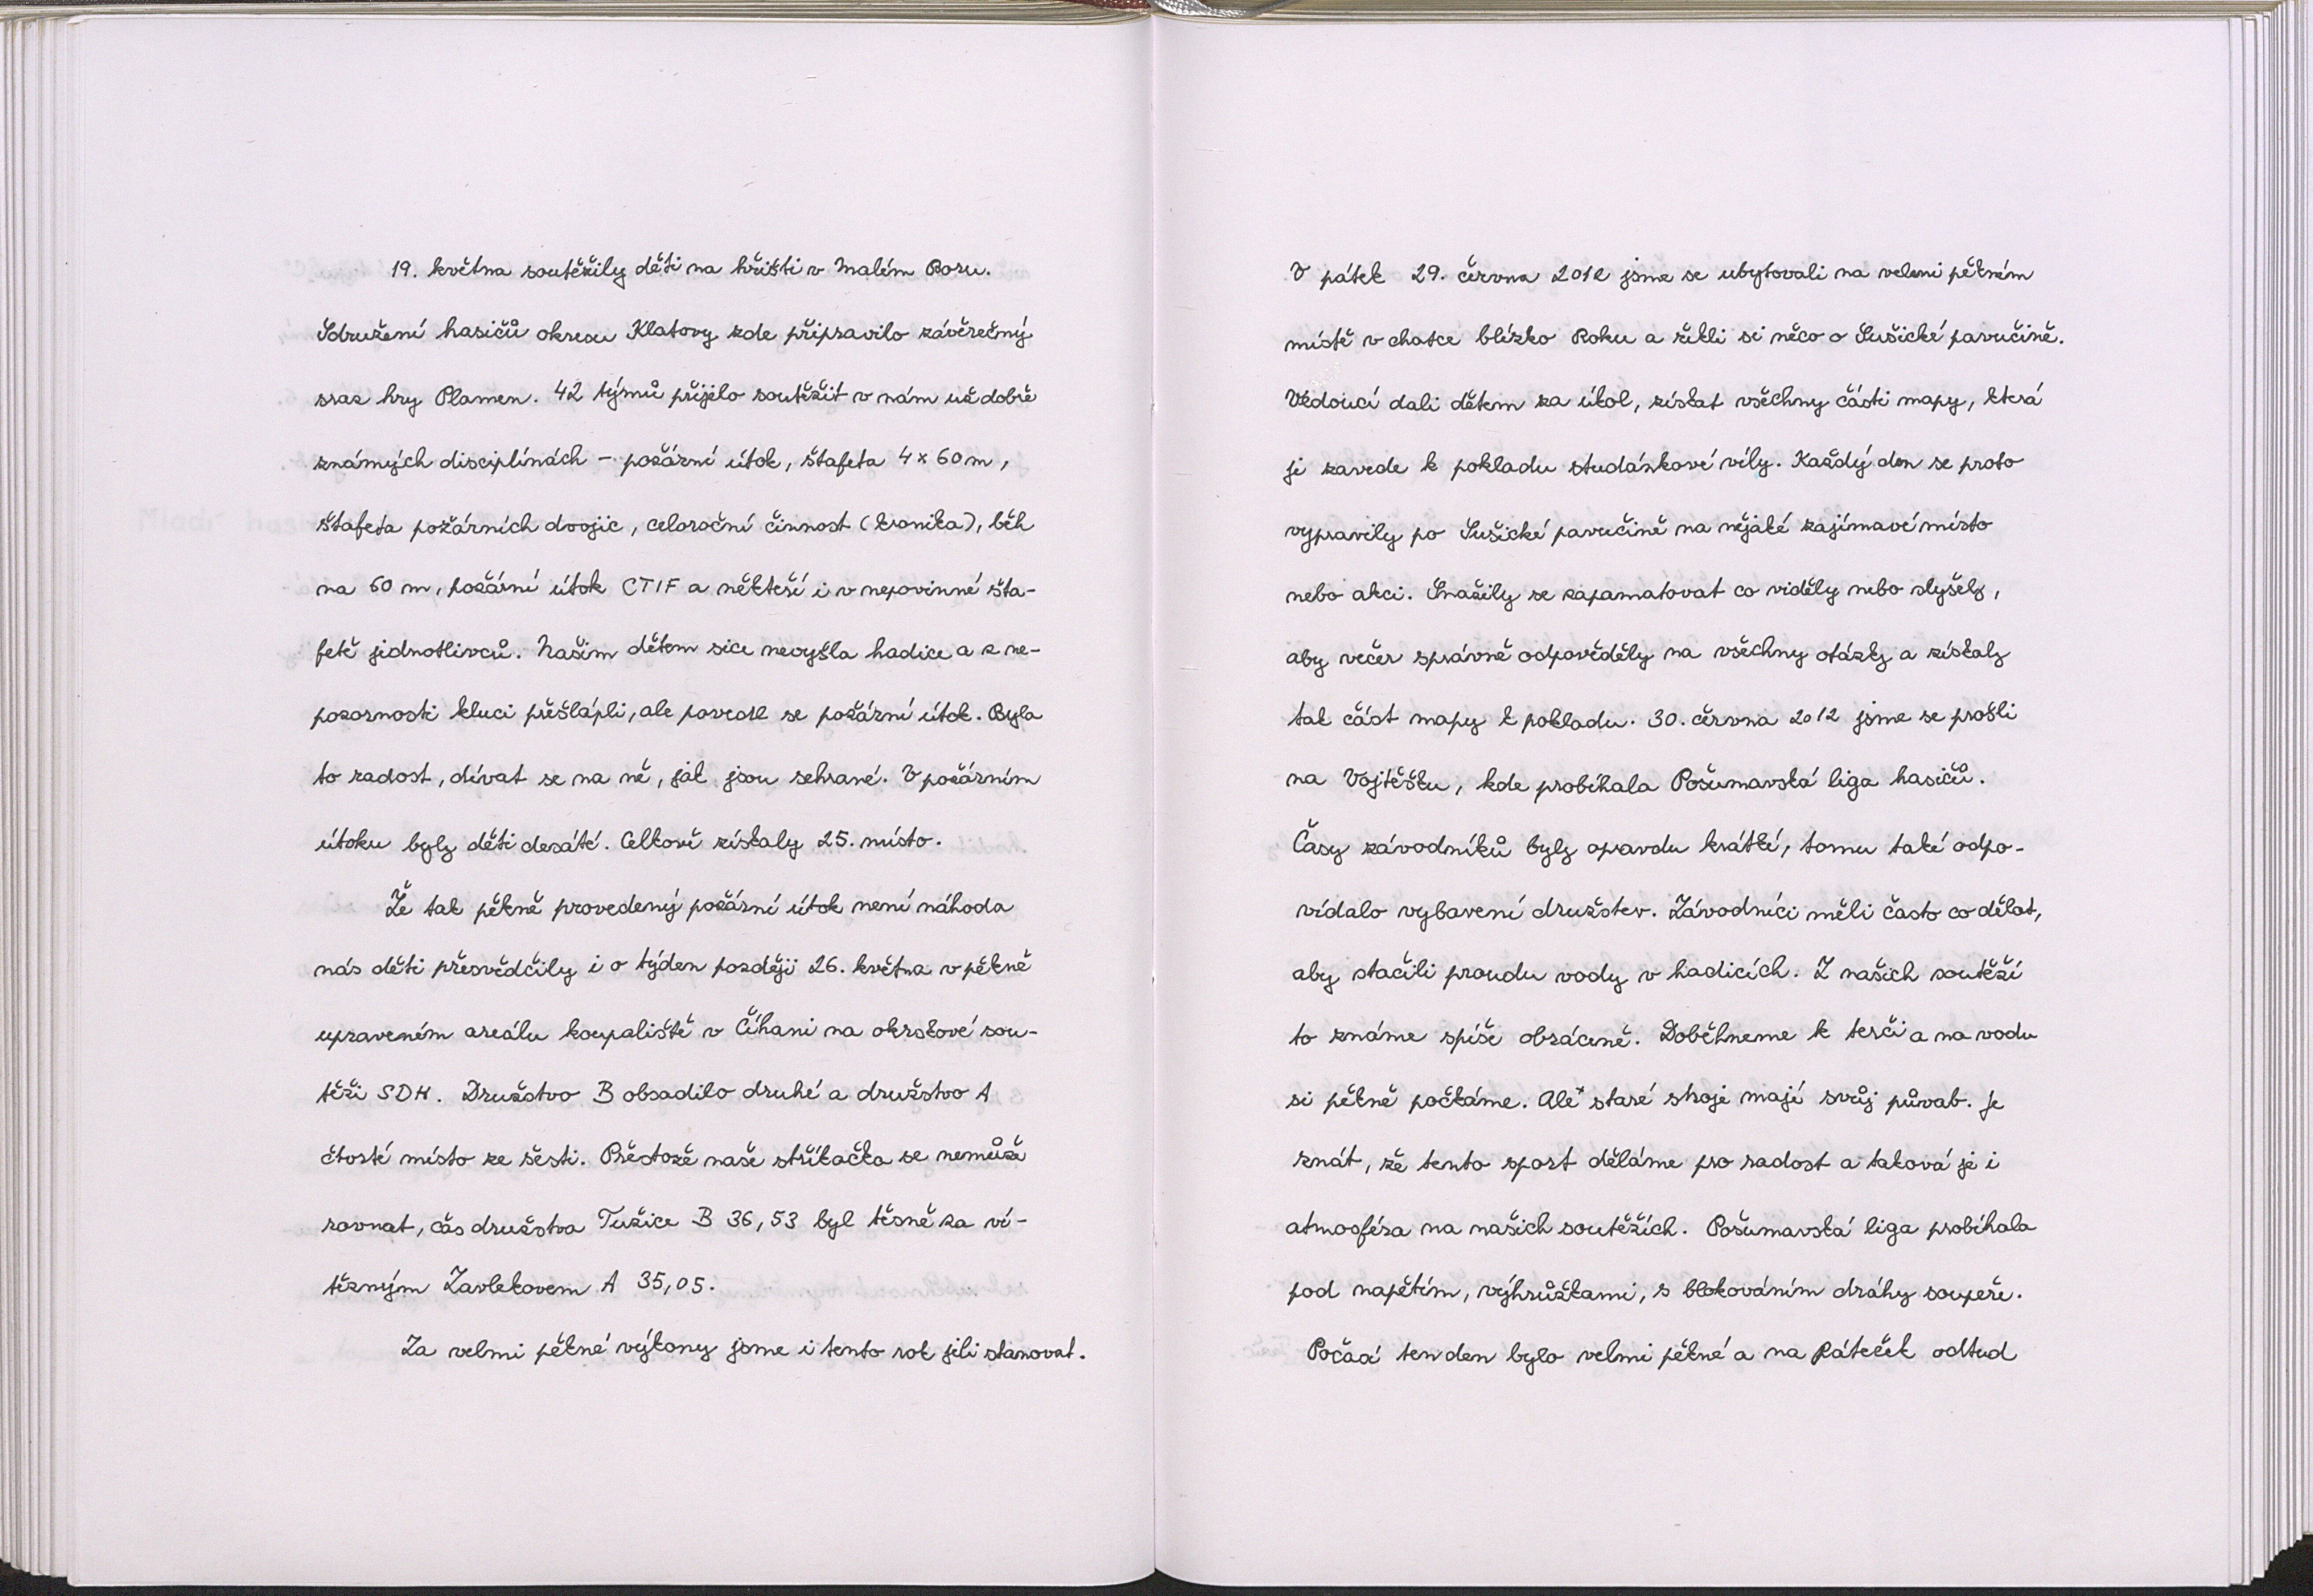 19. května soutěžily děti na hřišti v Malém Boru.
Sdružení hasičů okresu Klatovy zde připravilo závěrečný
sraz hry Plamen. 42 týmů přijelo soutěžit v nám už dobře
známých disciplínách - požární útok, štafeta 4 x 60 m,
štafeta požárních dvojic, celoroční činnost (kronika), běh
na 60 m, požární útok CTIF a někteří i v nepovinné šta-
fetě jednotlivců. Našim dětem sice nevyšla hadice a z ne-
pozornosti kluci přešlápli, ale povedl se požární útok. Byla
to radost, dívat se na ně, jak jsou sehrané. V požárním
útoku byly děti desáté. Celkově získaly 25. místo.
Že tak pěkně provedený požární útok není náhoda
nás děti přesvědčily i o týden později 26. května v pěkně
upraveném areálu koupaliště v Číhani na okrskové sou-
těži SDH. Družstvo B obsadilo druhé a družstvo A
čtvrté místo ze šesti. Přestože naše stříkačka se nemůže
rovnat, čas družstva Tužice B 36,53 byl těsně za ví-
tězným Zavlekovem A 35,05.
Za velmi pěkné výkony jsme i tento rok jeli stanovat.
V pátek 29. června 2012 jsme se ubytovali na velmi pěkném
místě v chatce blízko Roku a řekli si něco o Sušické pavučině.
Vedoucí dali dětem za úkol, získat všechny části mapy, která
je zavede k pokladu studánkové víly. Každý den se proto
vypravily po Sušické pavučině na nějaké zajímavé místo
nebo akci. Snažily se zapamatovat co viděly nebo slyšely,
aby večer správně odpověděly na všechny otázky a získaly
tak část mapy k pokladu. 30. června 2012 jsme se prošli
na Vojtěšku, kde probíhala Pošumavská liga hasičů.
Časy závodníků byly opravdu krátké, tomu také odpo-
vídalo vybavení družstev. Závodníci měli často co dělat,
aby stačili proudu vody v hadicích. Z našich soutěží
to známe spíše obráceně. Doběhneme k terči a na vodu
si pěkně počkáme. Ale staré stroje mají svůj půvab. Je
znát, že tento sport děláme pro radost a taková je i
atmosféra na našich soutěžích. Pošumavská liga probíhala
pod napětím, výhrůžkami, s blokováním dráhy soupeře.
Počasí ten den bylo velmi pěkné a na Ráteček odtud